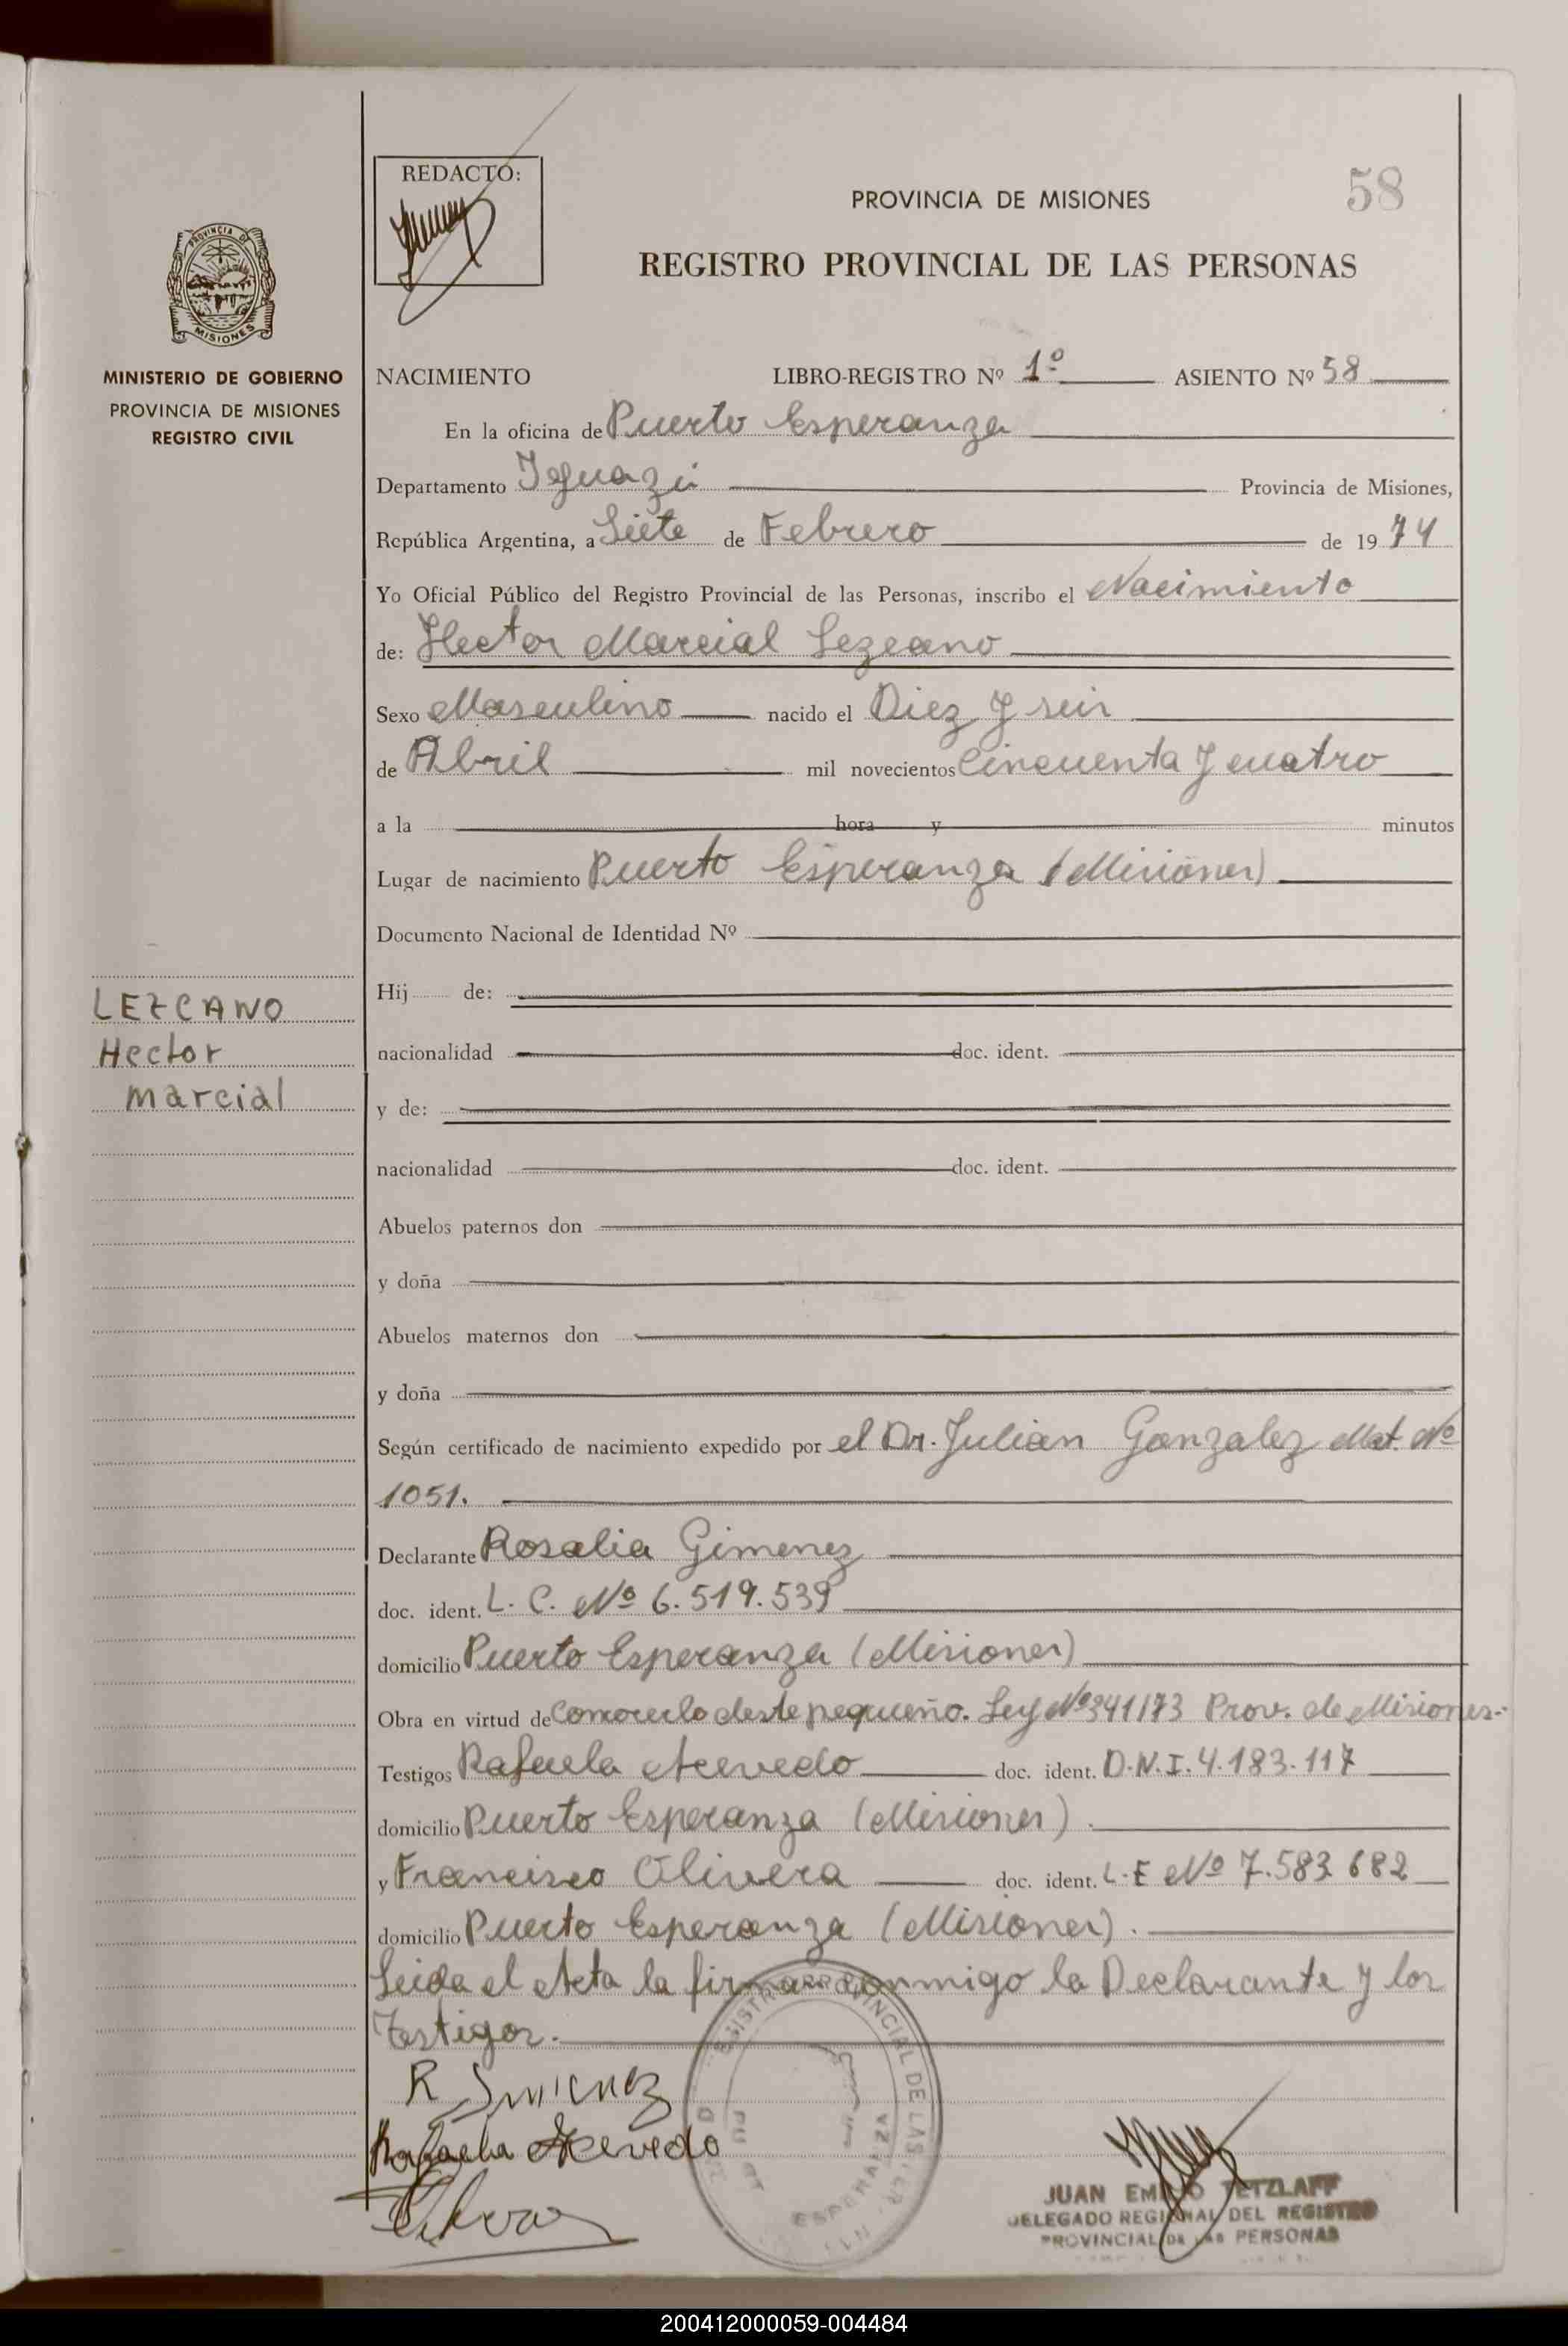 REDACTO:
PROVINCIA DE MISIONES
58
REGISTRO PROVINCIAL DE LAS PERSONAS
PROVINCIA DE
MISIONES
MINISTERIO DE GOBIERNO
PROVINCIA DE MISIONES
REGISTRO CIVIL
NACIMIENTO LIBRO-REGISTRO Nº 1º ASIENTO Nº 58
En la oficina de Puerto Esperanza
Departamento Iguazú Provincia de Misiones,
República Argentina, a Siete de Febrero de 1974
Yo Oficial Público del Registro Provincial de las Personas, inscribo el Nacimiento
de: Hector Marcial Lezcano
Sexo Masculino nacido el Diez y seis
de Abril mil novecientos Cincuenta y cuatro
a la hora y minutos
Lugar de nacimiento Puerto Esperanza (Misiones)
Documento Nacional de Identidad Nº
LEZCANO
Hector
marcial
Hij de:
nacionalidad doc. ident.
y de:
nacionalidad doc. ident.
Abuelos paternos don
y doña
Abuelos maternos don
y doña
Según certificado de nacimiento expedido por el Dr. Julian Gonzalez Mat. Nº
1051.
Declarante Rosalia Gimenez
doc. ident. L. C. Nº 6.519.539
domicilio Puerto Esperanza (Misiones)
Obra en virtud de Conocerlo desde pequeño. Ley Nº 341/73 Prov. de Misiones.-
Testigos Rafaela Acevedo doc. ident. D.N.I. 4.183.117
domicilio Puerto Esperanza (Misiones).
y Francisco Olivera doc. ident. L.E Nº 7.583.682
domicilio Puerto Esperanza (Misiones).
Leida el Acta la firman conmigo la Declarante y los
Testigos.
R Gimenez
Rafaela Acevedo
REGISTRO PROVINCIAL DE LAS PER
ESPERANZA
JUAN EMILIO TETZLAFF
DELEGADO REGIONAL DEL REGISTRO
PROVINCIAL DE LAS PERSONAS
200412000059-004484